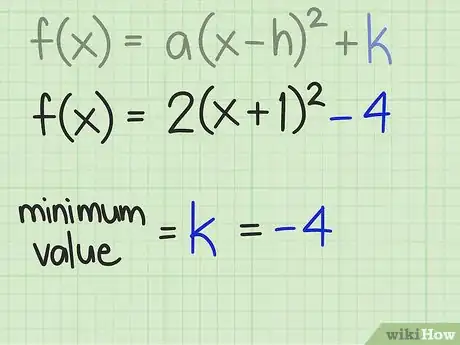 f(x) = a(x-h)² + k
f(x) = 2(x+1)² - 4
minimum value = k = -4
wikiHow